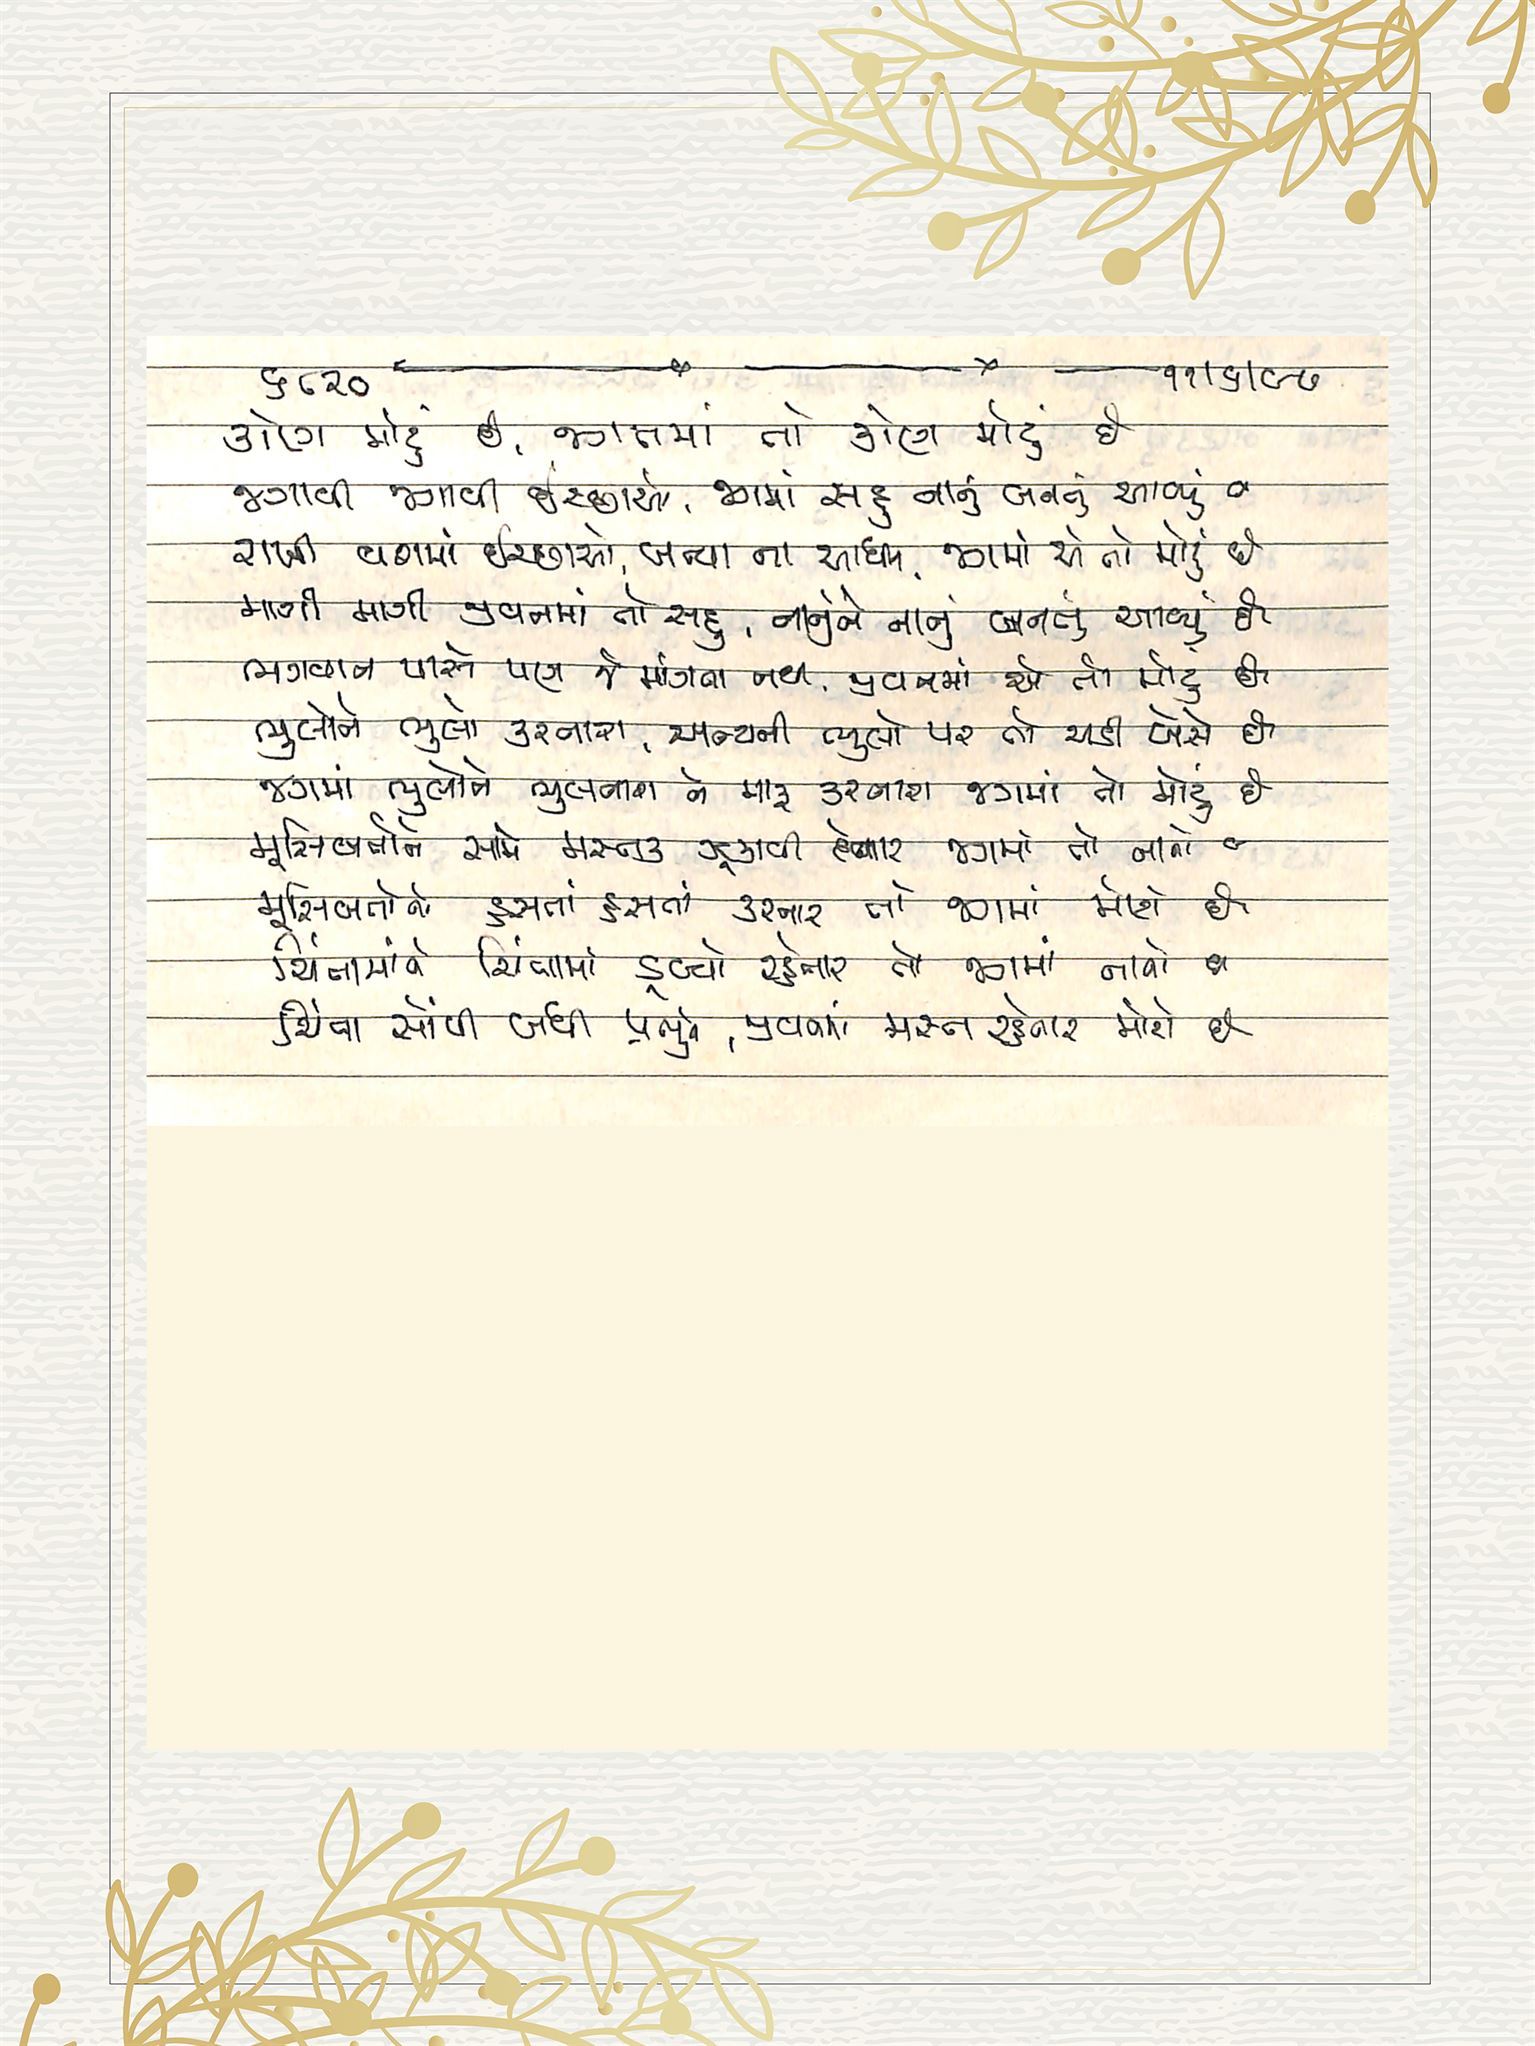 ૬૮૨૦ ૧૧/૬/૯૭
કોણ મોટું છે, જગતમાં તો કોણ મોટું છે
જગાવી જગાવી ઈચ્છાઓ, જગમાં સહુ નાનું બનતું આવ્યું છે
રાખી વશમાં ઈચ્છાઓ, બન્યા ના આધીન, જગમાં એ તો મોટું છે
માગી માગી જીવનમાં તો સહુ, નાનું ને નાનું બનતું આવ્યું છે
ભગવાન પાસે પણ જે માંગતા નથી, જીવનમાં એ તો મોટું છે
ભુલોને ભુલો કરનારા, અન્યની ભુલો પર તો ચડી બેસે છે
જગમાં ભુલોને ભુલનારા ને માફ કરનારા જગમાં તો મોટું છે
મુસિબતોને સામે મસ્તક ઝૂકાવી દેનાર જગમાં તો નાનો છે
મુસિબતોને હસતાં હસતાં કરનાર તો જગમાં મોટો છે
ચિંતામાંને ચિંતામાં ડૂબ્યો રહેનાર તો જગમાં નાનો છે
ચિંતા સોંપી બધી પ્રભુને, જીવનમાં મસ્ત રહેનાર મોટો છે